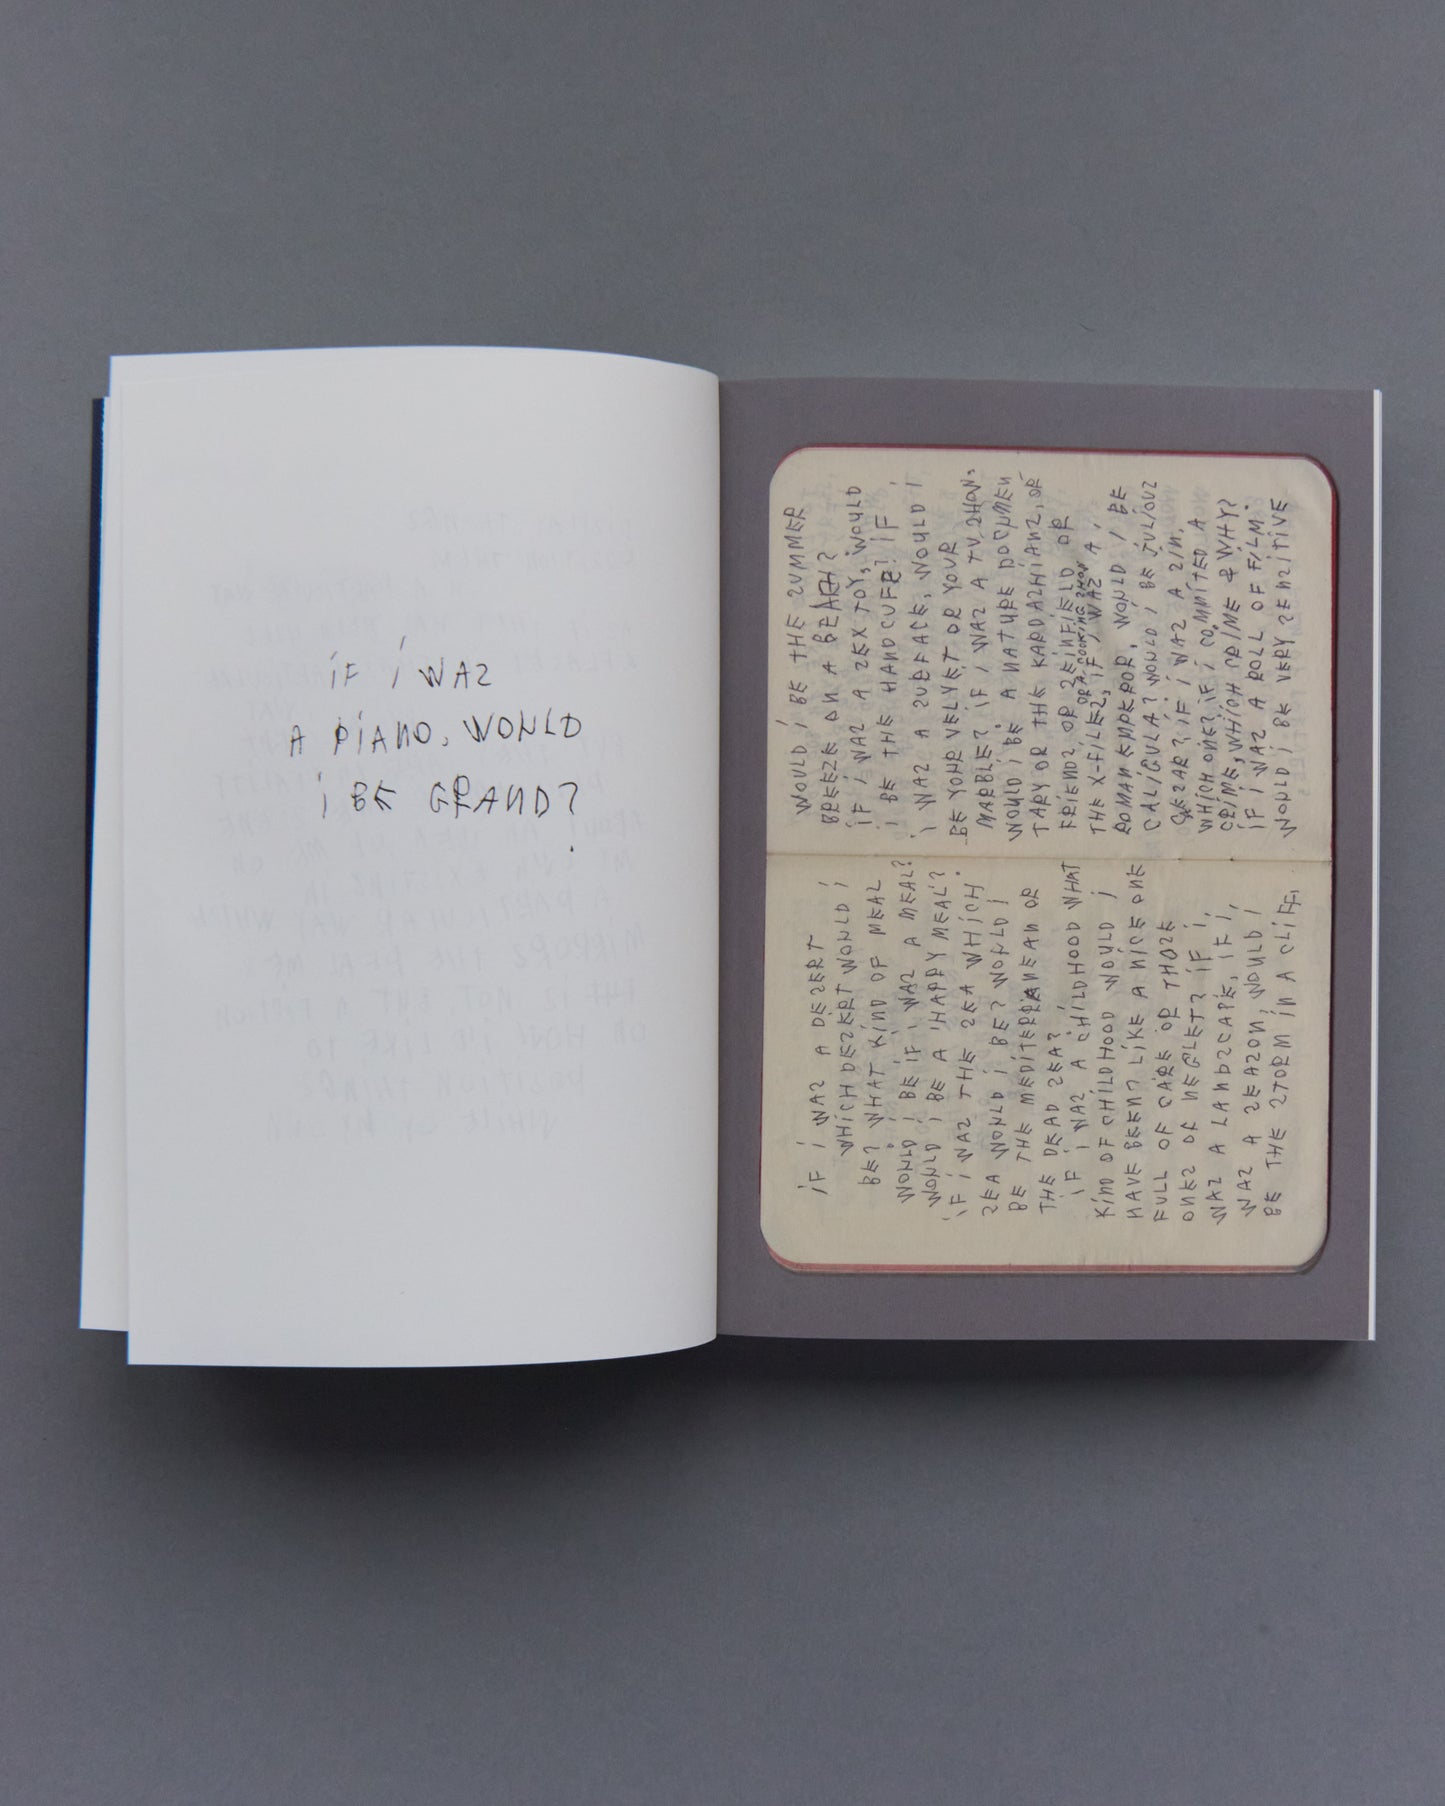 iF i WAZ
A PiANO, WOULD
i BE GRAND?
iF i WAZ A DEZERT
WHiCH DEZERT WOULD i
BE? WHAT KiND OF MEAL
WOULD i BE iF i WAZ A MEAL?
WOULD i BE A HAPPY MEAL?
iF i WAZ THE ZEA WHiCH
ZEA WOULD i BE? WOULD i
BE THE MEDiTERRANEAN OR
THE DEAD ZEA?
iF i WAZ A CHiLDHOOD WHAT
KiND OF CHiLDHOOD WOULD i
HAVE BEEN? LiKE A NiCE ONE
FULL OF CARE OR THOZE
ONEZ OF NEGLET? iF i,
WAZ A LANDZCAPE, iF i,
WAZ A ZEAZON, WOULD i
BE THE ZTORM iN A CLiFF,
WOULD i BE THE ZUMMER
BREEZE ON A BEACH?
iF i WAZ A ZEX TOY, WOULD
i BE THE HANDCUFF? iF
i WAZ A ZURFACE, WOULD i
BE YOUR VELVET OR YOUR
MARBLE? iF i WAZ A TV ZHOW,
WOULD i BE A NATURE DOCUMEN
TARY OR THE KARDAZHiANZ, OR
FRiENDZ OR ZEiNFiELD OR
OR A COOKiNG ZHOW
THE X-FiLEZ, iF i WAZ A
ROMAN EMPEROR, WOULD i BE
CALiGULA? WOULD i BE JULiOUZ
CEZAR? iF i WAZ A ZiN,
WHiCH ONE? iF i COMMiTED A
CRiME, WHiCH CRiME & WHY?
iF i WAZ A ROLL OF FiLM.
WOULD i BE VERY ZENZiTiVE